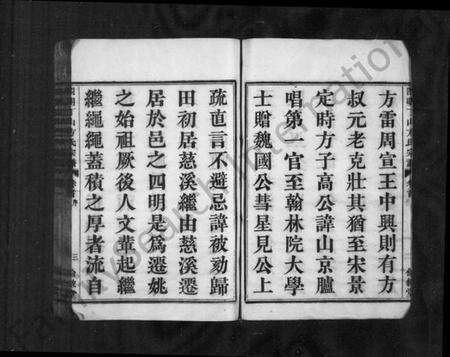 方雷周宣王中興則有方
叔元老克壯其猶至宋景
定時方子高公諱山京臚
唱第一官至翰林院大學
士贈魏國公彗星見公上
疏直言不避忌諱被劾歸
田初居慈溪繼由慈溪遷
居於邑之四明是爲遷姚
之始祖厥後人文蔚起繼
繼繩繩蓋積之厚者流自